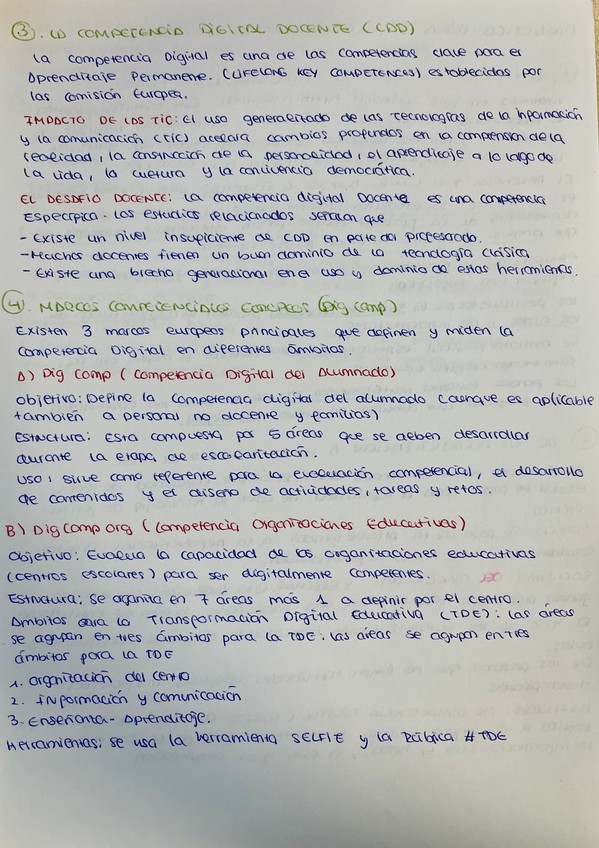 ③. LA COMPETENCIA DIGITAL DOCENTE (CDD)
La competencia Digital es una de las competencias clave para el
Aprendizaje Permanente. (LIFELONG KEY COMPETENCES) establecidas por
las comisión Europea.
IMPACTO DE LAS TIC: El uso generalizado de las Tecnologías de la Información
y la comunicación (TIC) acelara cambios profundos en la comprensión de la
realidad, la construcción de la personalidad, el aprendizaje a lo largo de
la vida, la cultura y la convivencia democrática.
EL DESAFÍO DOCENTE: La competencia digital Docente es una competencia
Específica. Los estudios relacionados señalan que
- Existe un nivel insuficiente de CDD en parte del profesorado.
- Muchos docentes tienen un buen dominio de la tecnología clásica
- Existe una brecha generacional en el uso y dominio de estas herramientas.
④. MARCOS COMPETENCIALES EUROPEOS (Dig Comp)
Existen 3 marcos europeos principales que definen y miden la
competencia Digital en diferentes ámbitos.
A) Dig Comp (Competencia Digital del Alumnado)
Objetivo: Define la competencia digital del alumnado (aunque es aplicable
también a personal no docente y familias)
Estructura: Esta compuesta por 5 áreas que se deben desarrollar
durante la etapa de escolarización.
Uso: sirve como referente para la evaluación competencial, el desarrollo
de contenidos y el diseño de actividades, tareas y retos.
B) Dig Comp Org (Competencia Organizaciones Educativas)
Objetivo: Evalúa la capacidad de las organizaciones educativas
(centros escolares) para ser digitalmente competentes.
Estructura: Se organiza en 7 áreas más 1 a definir por el centro.
Ámbitos para la Transformación Digital Educativa (TDE): las áreas
se agrupan en tres ámbitos para la TDE: las áreas se agrupan en tres
ámbitos para la TDE
1. Organización del centro
2. Información y comunicación
3. Enseñanza - Aprendizaje.
Herramientas: se usa la herramienta SELFIE y la Rúbrica #TDE